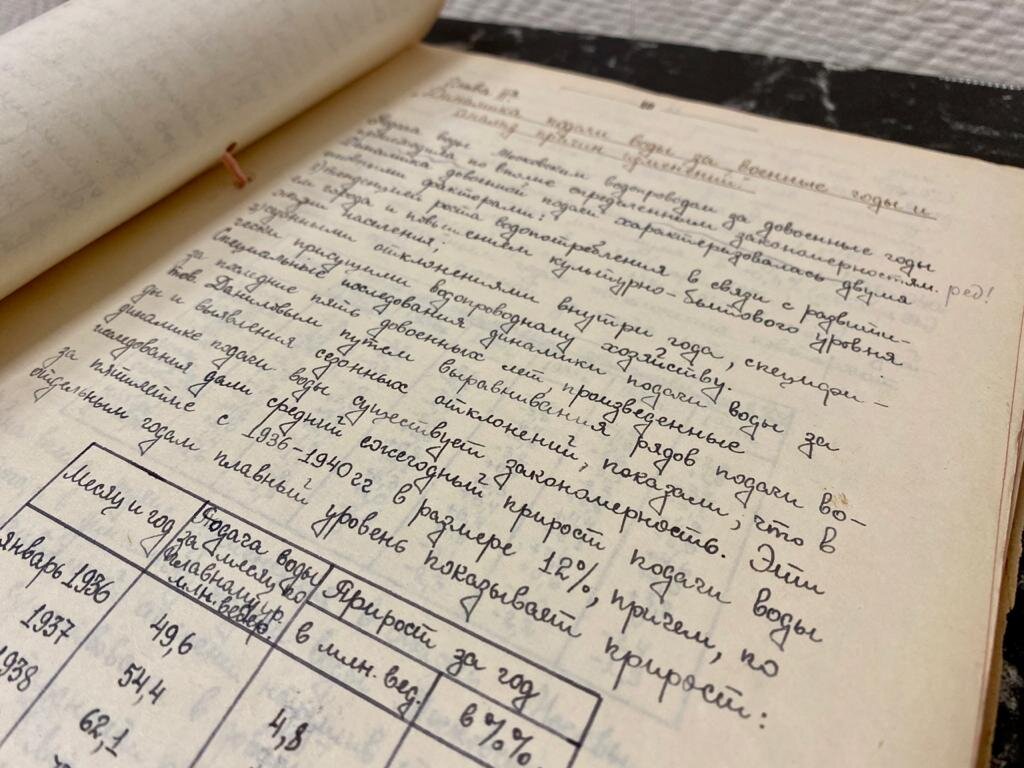 Глава
Динамика подачи воды за военные годы и
анализ причин изменений.
Подача воды московским водопроводом за довоенные годы
происходила по вполне определенным закономерностям. ред!
Динамика довоенной подачи характеризовалась двумя
основными факторами:
1) тенденцией роста водопотребления в связи с развити-
ем города и повышением культурно-бытового уровня
жизни населения;
2) сезонными отклонениями внутри года, специфи-
чески присущими водопроводному хозяйству.
Специальные исследования динамики подачи воды за
последние пять довоенных лет, произведенные
тов. Даниловым путем выравнивания рядов подачи во-
ды и выявления сезонных отклонений, показали, что в
динамике подачи воды существует закономерность. Эти
исследования дали средний ежегодный прирост подачи воды
за пятилетие с 1936-1940 гг в размере 12%, причем, по
отдельным годам плавный уровень показывает прирост:
Месяц и год
Подача воды
за месяц по
плавному ур.
млн. ведер.
Прирост за год
в млн. вед.
в %%
Январь 1936
49,6
1937
54,4
4,8
1938
62,1